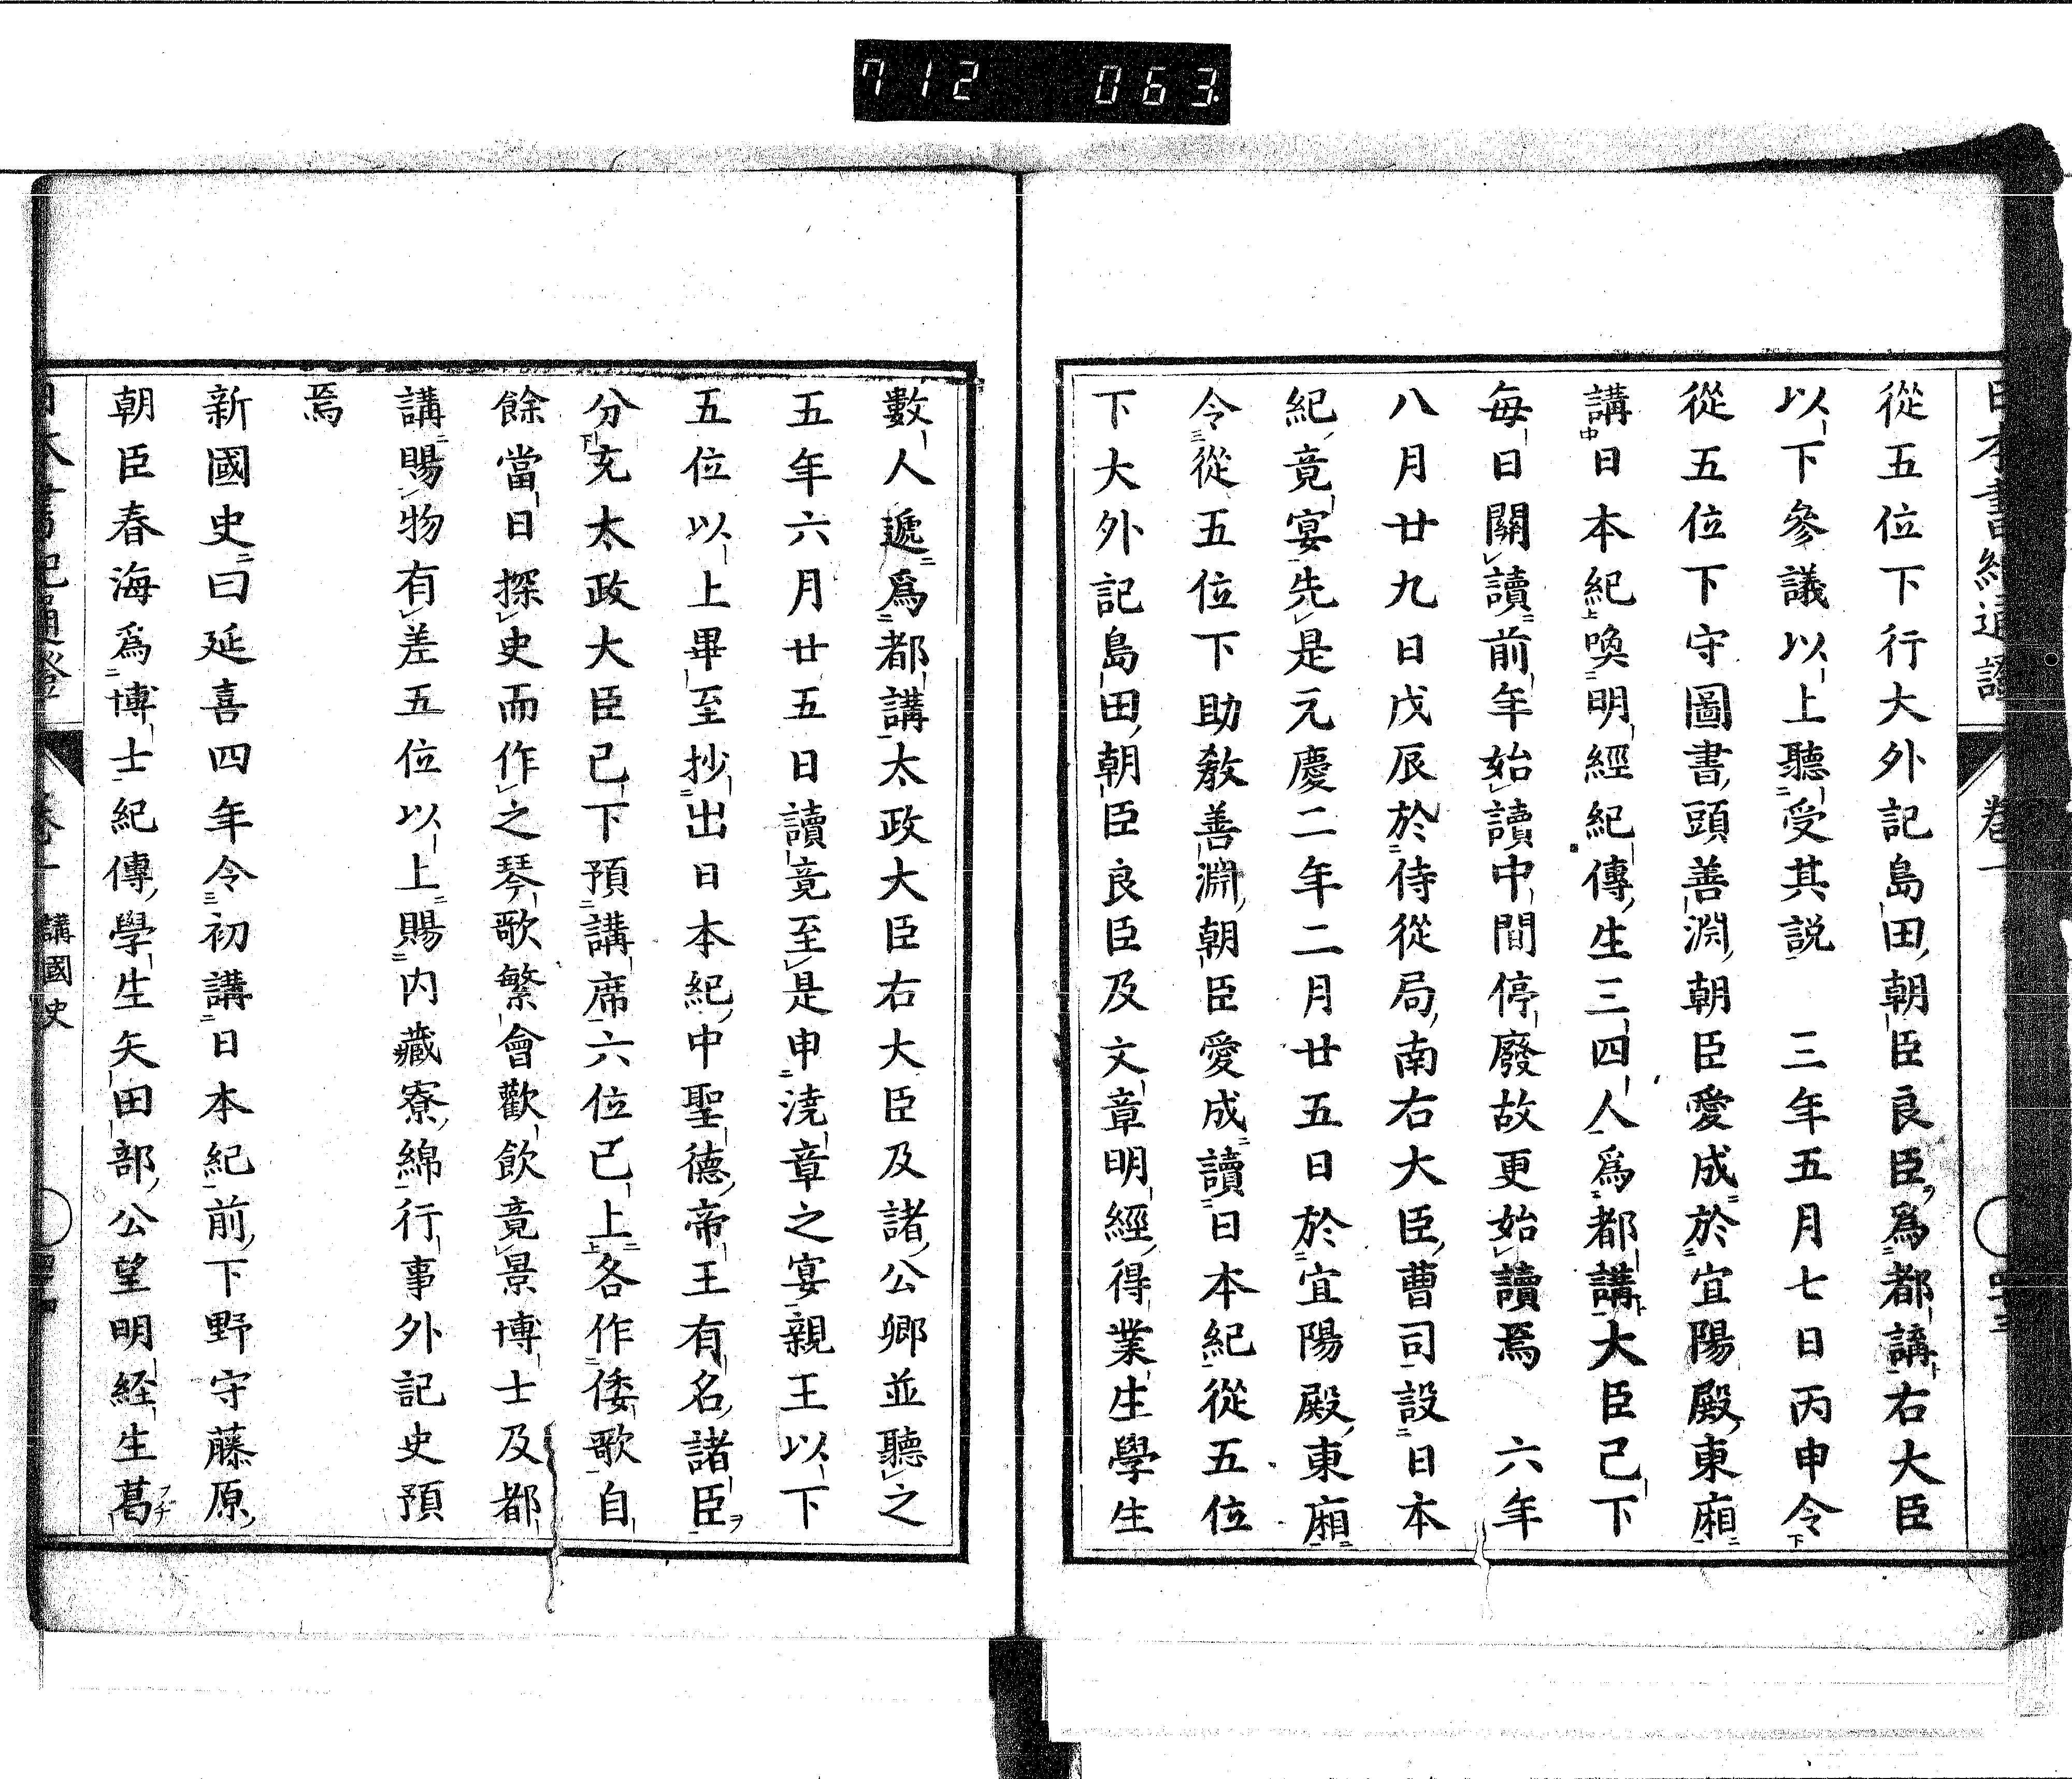 712 063
日本書紀通證 卷一
從五位下行大外記島田朝臣良臣爲都講右大臣
以下參議以上聽受其説 三年五月七日丙申令
從五位下守圖書頭善淵朝臣愛成於宜陽殿東廂
講日本紀喚明經紀傳生三四人爲都講大臣已下
每日關讀前年始讀中間停廢故更始讀焉 六年
八月廿九日戊辰於侍從局南右大臣曹司設日本
紀竟宴先是元慶二年二月廿五日於宜陽殿東廂
令從五位下助教善淵朝臣愛成讀日本紀從五位
下大外記島田朝臣良臣及文章明經得業生學生
數人遞爲都講太政大臣右大臣及諸公卿並聽之
五年六月廿五日讀竟至是申澆章之宴親王以下
五位以上畢至抄出日本紀中聖德帝王有名諸臣
分充太政大臣已下預講席六位已上各作倭歌自
餘當日探史而作之琴歌繁會歡飲竟景博士及都
講賜物有差五位以上賜内藏寮綿行事外記史預
焉
新國史曰延喜四年令初講日本紀前下野守藤原
朝臣春海爲博士紀傳學生矢田部公望明經生葛
日本書紀通證 卷一 講國史